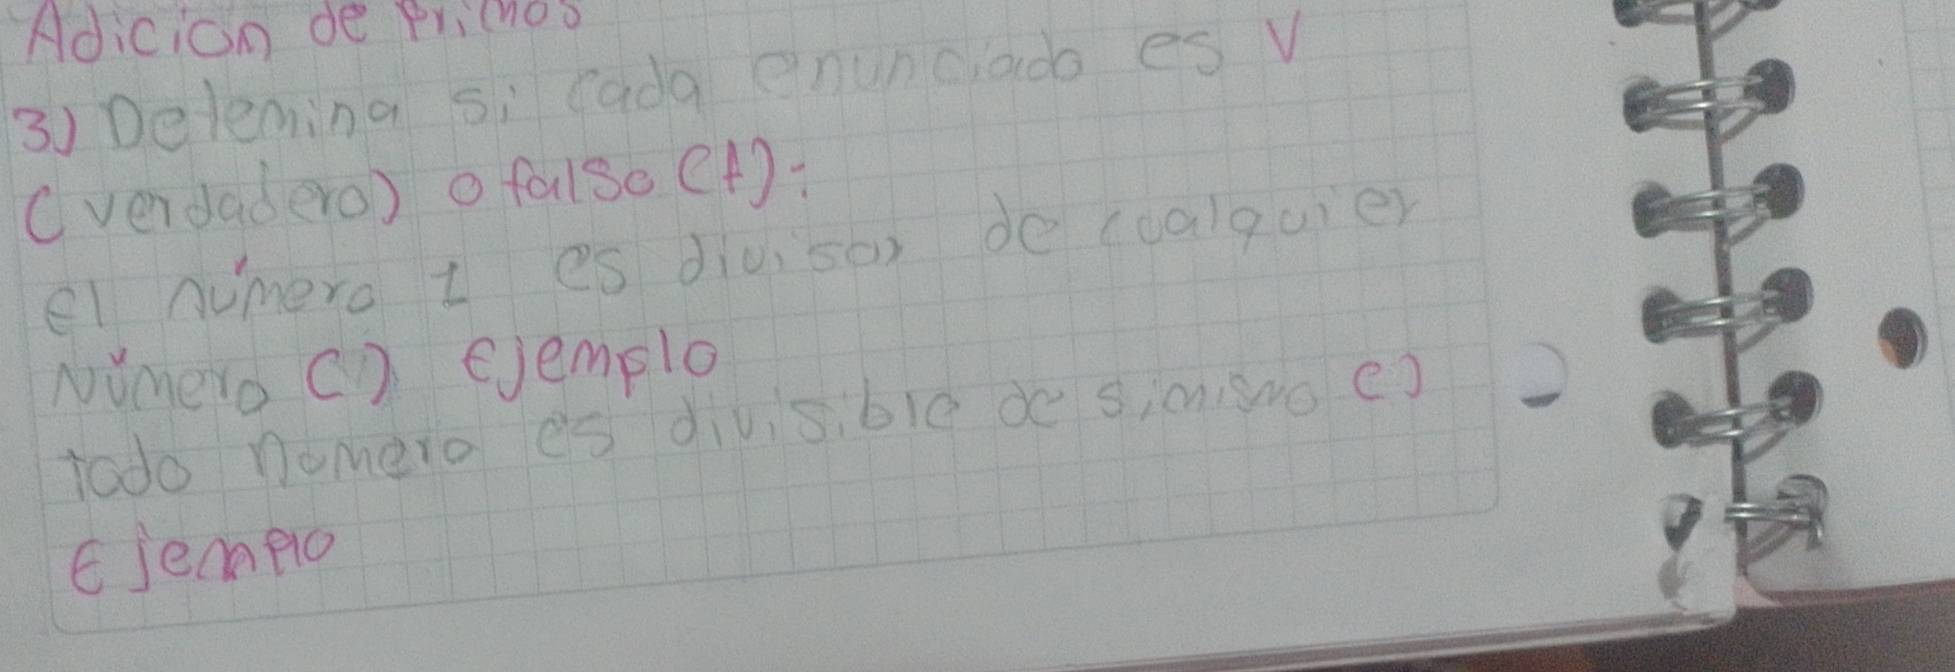 Adición de primos
3) Detemina si cada enunciado es V
(verdadero) o falso (f):
el número 1 es divisor de cualquier
Número () Ejemplo
todo número es divisible de simismo ()
Ejemplo